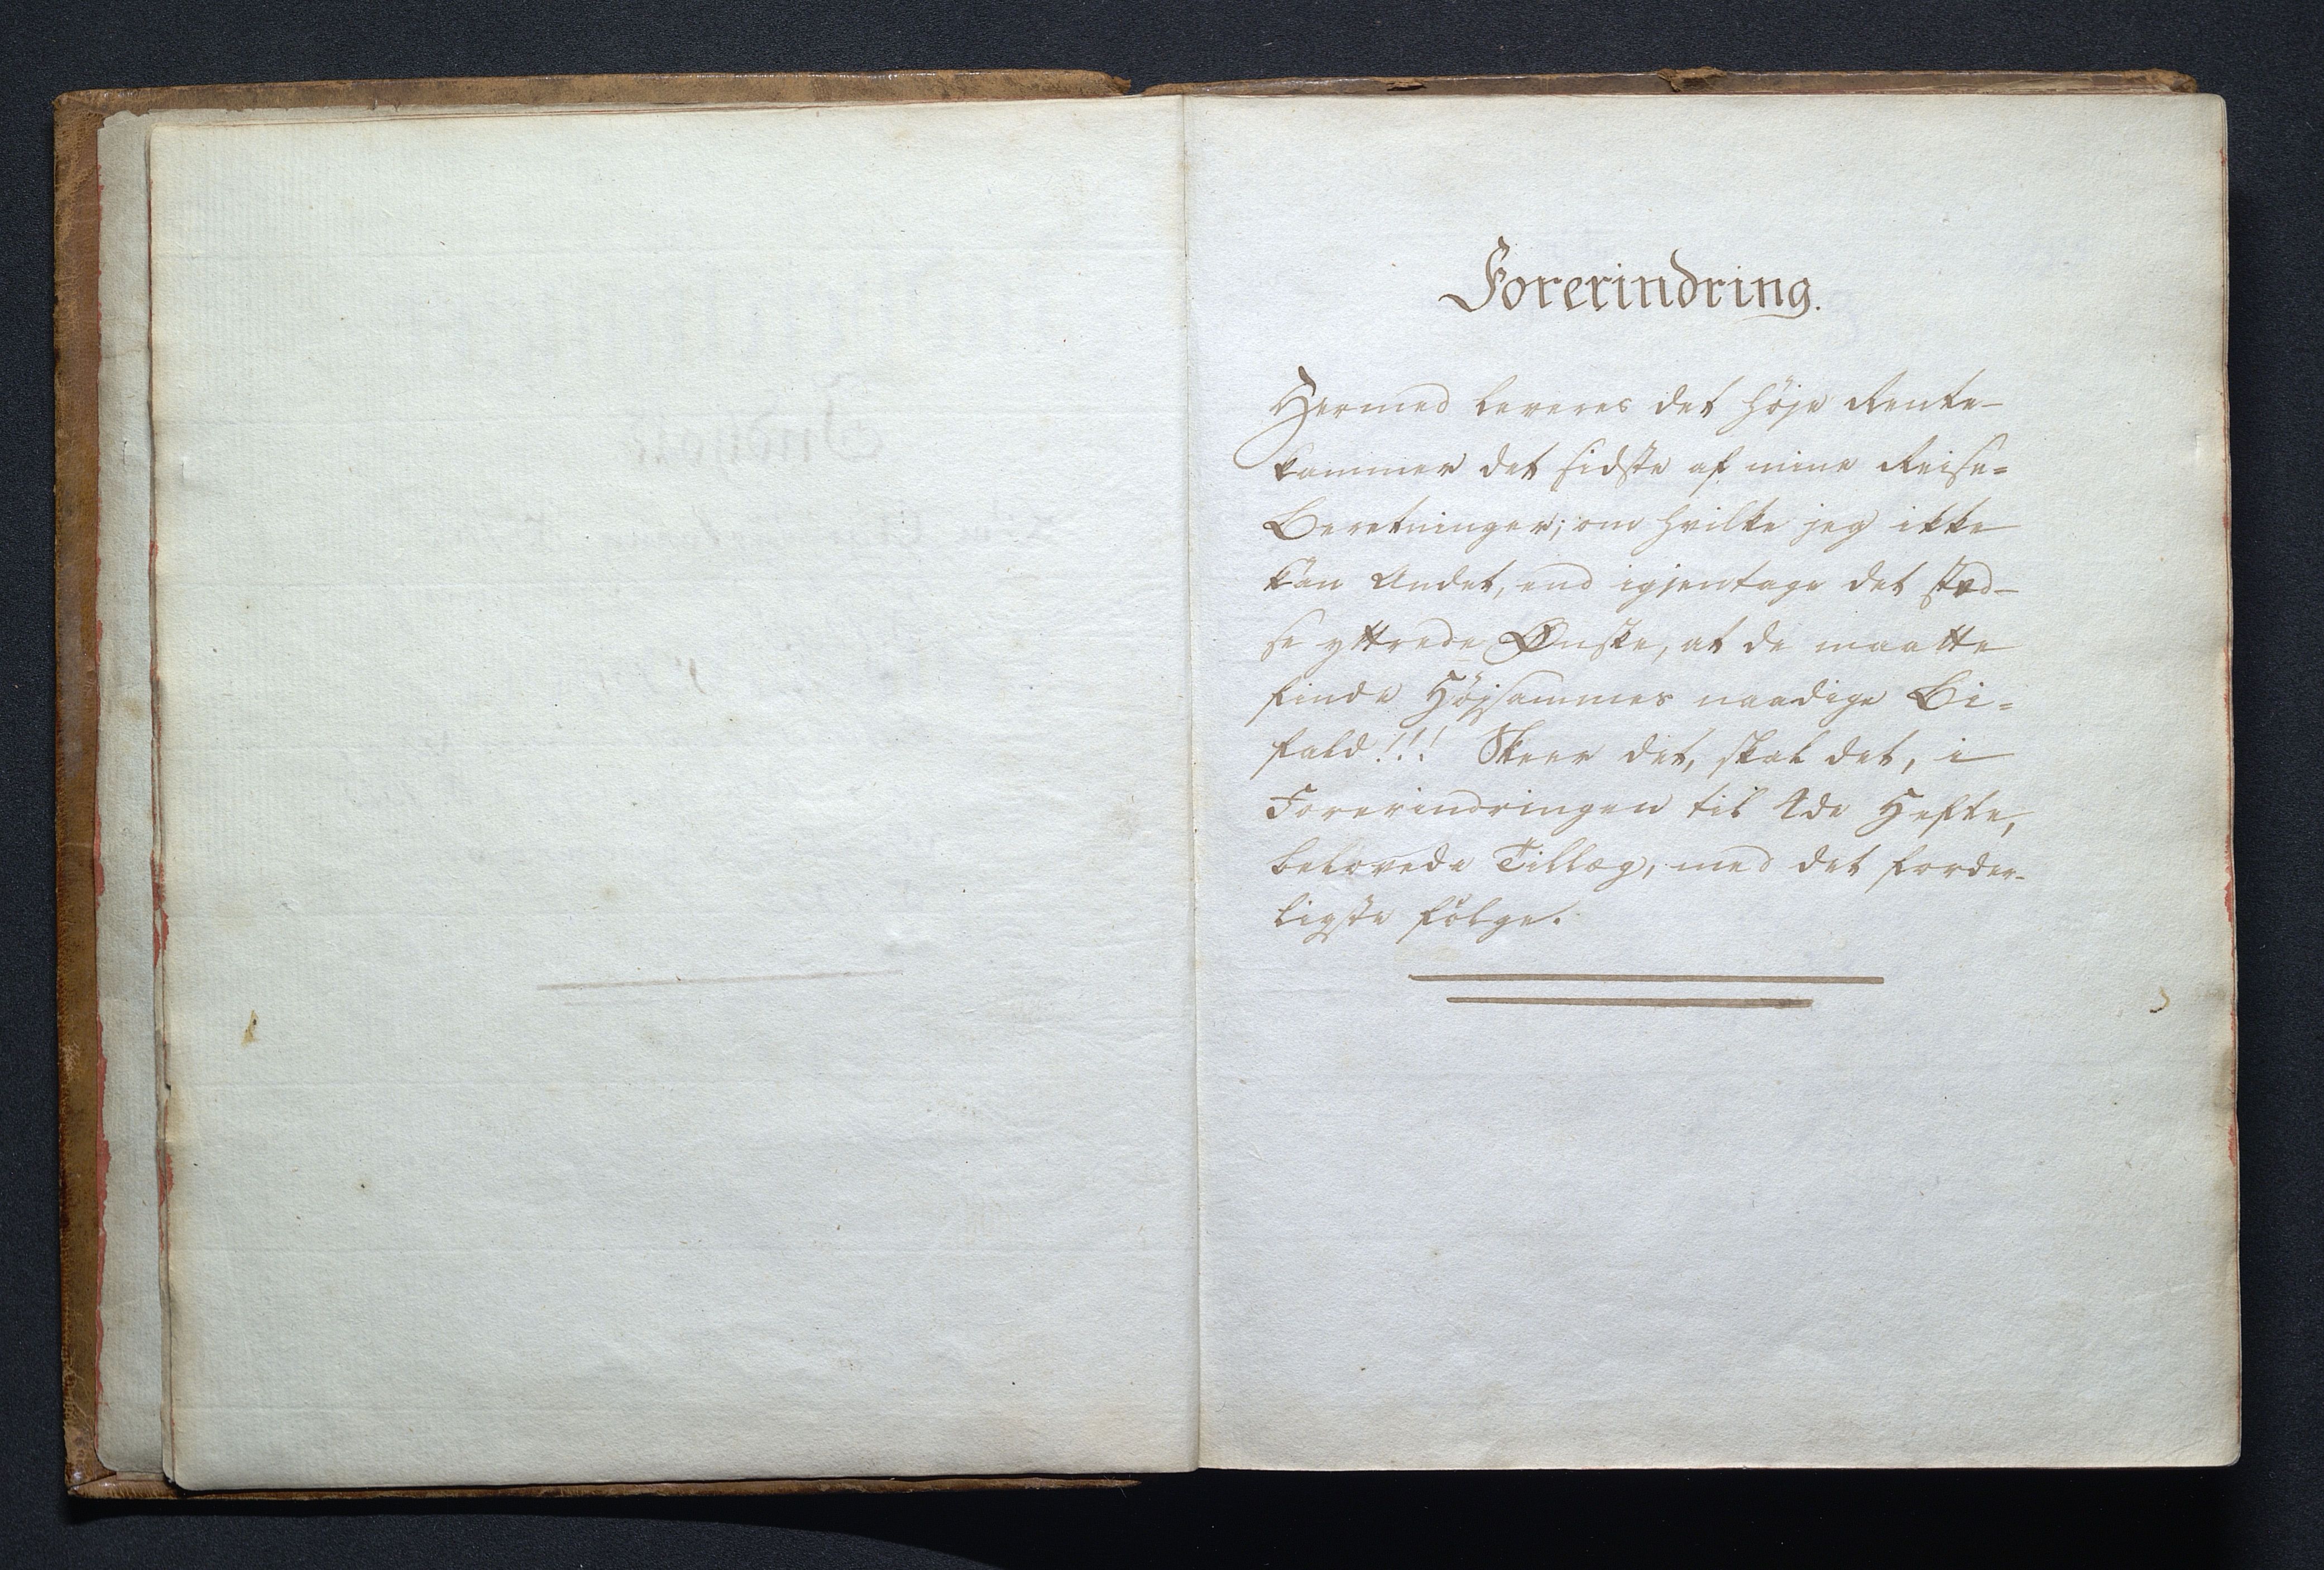 Forerindring.
Hermed leveres det høje Rente-
kammer det sidste af mine Reise-
Beretninger; om hvilke jeg ikke
kan Andet, end igjentage det sted-
se yttrede Ønske, at de maatte
finde Højsammes naadige Bi-
fald!!! Skeer det, skal det, i
Forerindringen til 4de Hefte,
belovede Tillæg, med det forder-
ligste følge.